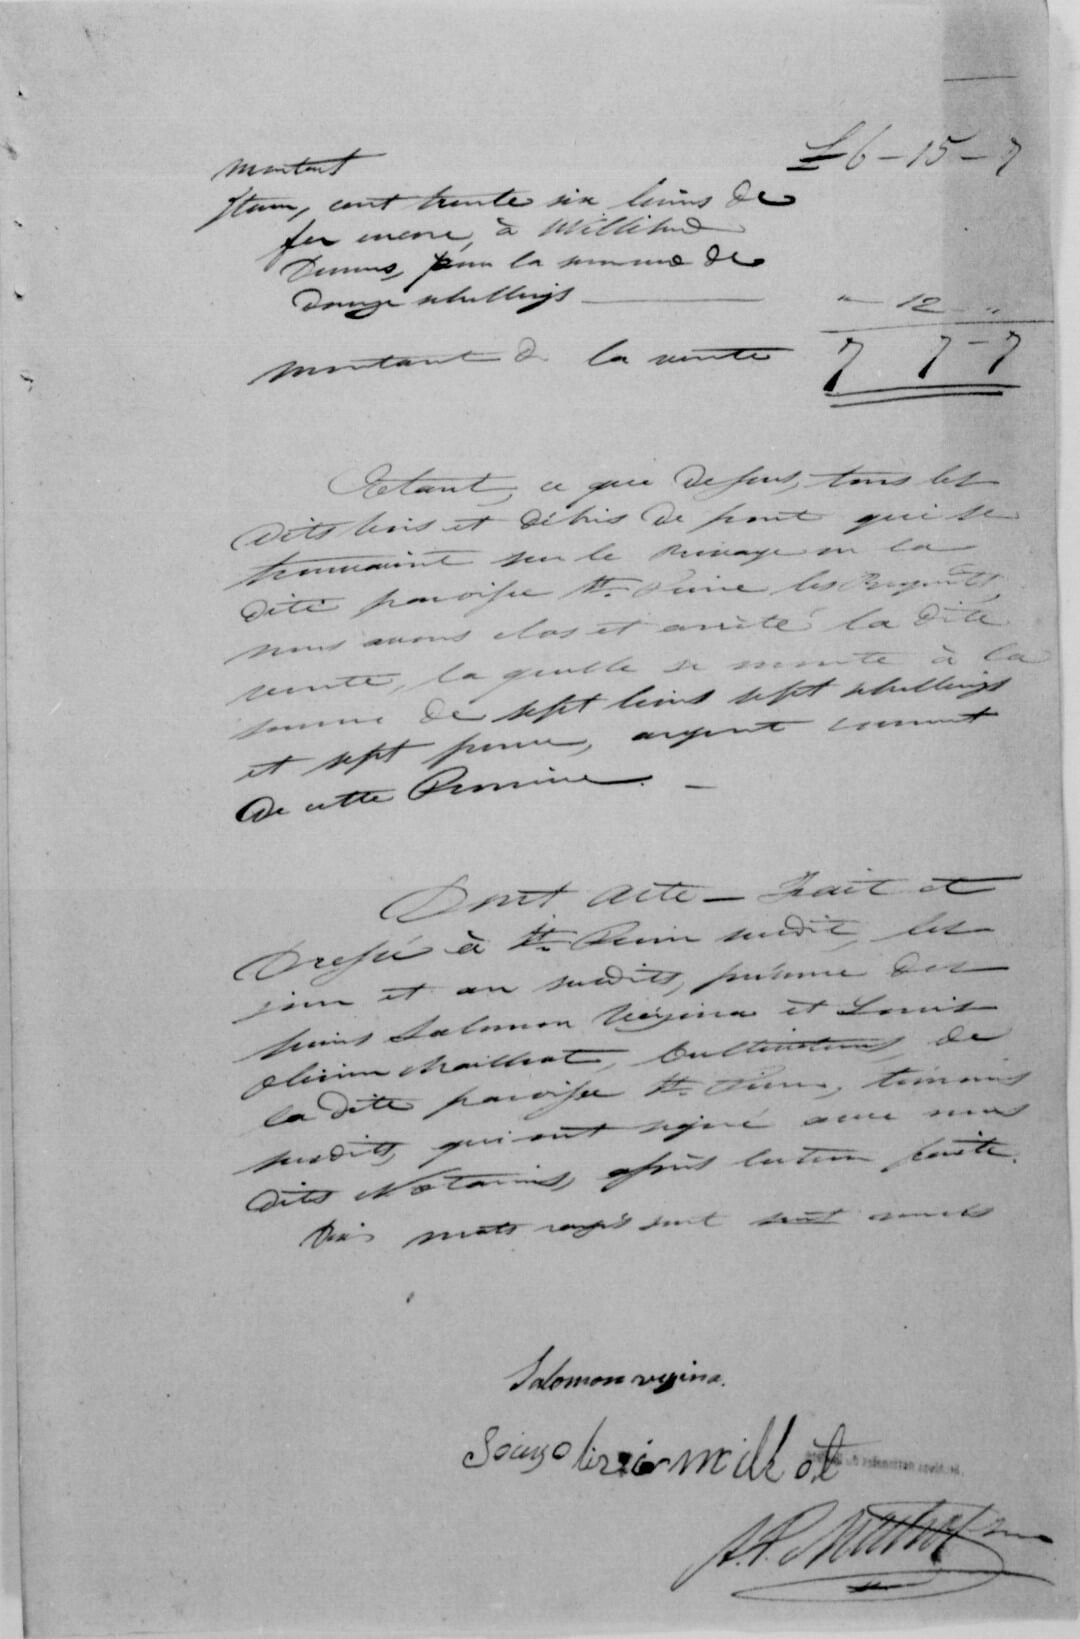 montant £ 6 - 15 - 7
Item, cent trente six livres de
fer encore, à
pour la somme de
Douze schellings " 12 "
montant de la vente 7 7 - 7
Etant ce que dessus, tous les
dits bois et débris de pont qui se
trouvaient sur le rivage en la
dite paroisse St. Pierre les Becquets,
nous avons clos et arrêté la dite
vente, la quelle se monte à la
somme de sept livres sept schellings
et sept pence, argent courant
de cette Province. -
Dont Acte - Fait et
Dressé à St. Pierre susdit, les
jour et an susdits, présence des
sieurs Salomon Végina et Louis
Olivier Mailhot, Cultivateurs, de
la dite paroisse St. Pierre, témoins
susdits, qui ont signé avec nous
dits Notaires, après lecture faite.
mots rayés sont nuls
Salomon vegina.